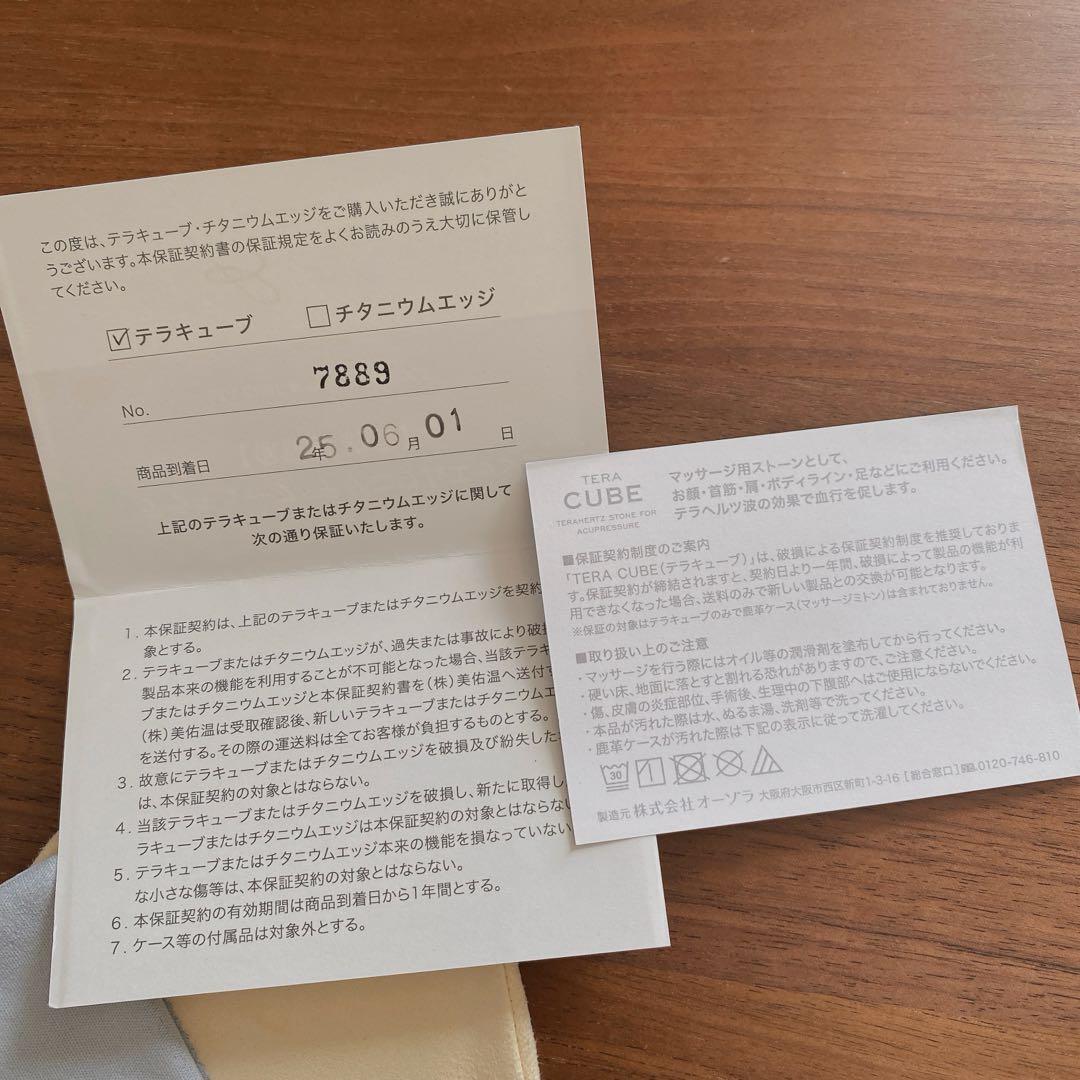 この度は、テラキューブ・チタニウムエッジをご購入いただき誠にありがと
うございます。本保証契約書の保証規定をよくお読みのうえ大切に保管し
てください。
☑テラキューブ □チタニウムエッジ
No. 7889
商品到着日 25年.06月01日
上記のテラキューブまたはチタニウムエッジに関して
次の通り保証いたします。
1. 本保証契約は、上記のテラキューブまたはチタニウムエッジを契約
象とする。
2. テラキューブまたはチタニウムエッジが、過失または事故により破
製品本来の機能を利用することが不可能となった場合、当該テラキ
ブまたはチタニウムエッジと本保証契約書を(株)美佑温へ送付す
(株)美佑温は受取確認後、新しいテラキューブまたはチタニウムエ
を送付する。その際の運送料は全てお客様が負担するものとする。
3. 故意にテラキューブまたはチタニウムエッジを破損及び紛失した
は、本保証契約の対象とはならない。
4. 当該テラキューブまたはチタニウムエッジを破損し、新たに取得し
ラキューブまたはチタニウムエッジは本保証契約の対象とはならない
5. テラキューブまたはチタニウムエッジ本来の機能を損なっていない
な小さな傷等は、本保証契約の対象とはならない。
6. 本保証契約の有効期間は商品到着日から1年間とする。
7. ケース等の付属品は対象外とする。
TERA
CUBE
TERAHERTZ STONE FOR
ACUPRESSURE
マッサージ用ストーンとして、
お顔・首筋・肩・ボディライン・足などにご利用ください。
テラヘルツ波の効果で血行を促します。
■保証契約制度のご案内
「TERA CUBE(テラキューブ)」は、破損による保証契約制度を推奨しておりま
す。保証契約が締結されますと、契約日より一年間、破損によって製品の機能が利
用できなくなった場合、送料のみで新しい製品との交換が可能となります。
※保証の対象はテラキューブのみで鹿革ケース(マッサージミトン)は含まれておりません。
■取り扱い上のご注意
・マッサージを行う際にはオイル等の潤滑剤を塗布してから行ってください。
・硬い床、地面に落とすと割れる恐れがありますので、ご注意ください。
・傷、皮膚の炎症部位、手術後、生理中の下腹部へはご使用にならないでください。
・本品が汚れた際は水、ぬるま湯、洗剤等で洗ってください。
・鹿革ケースが汚れた際は下記の表示に従って洗濯してください。
30
製造元 株式会社オーゾラ 大阪府大阪市西区新町1-3-16 [総合窓口] 0120-746-810